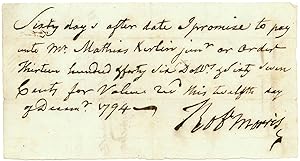 Sixty days after date I promise to pay
unto Mr. Mathias Kerlin junr or Order
Thirteen hundred & forty Six Dollrs & Sixty Seven
Cents for Value recd this twelfth day
of Decemr 1794
Robt Morris